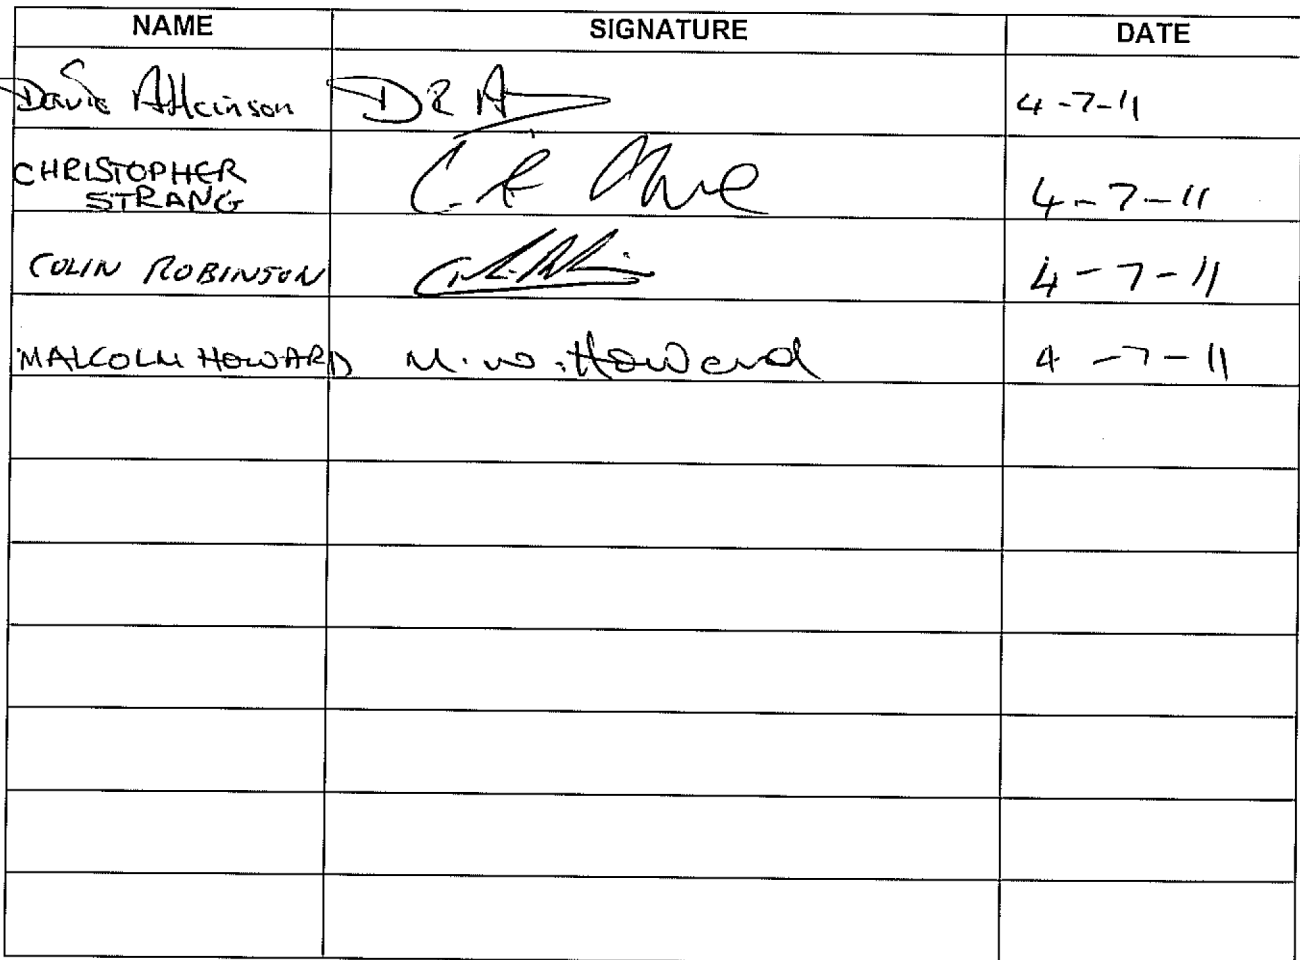 NAME SIGNATURE DATE
David Atkinson D R A 4-7-11
CHRISTOPHER
STRANG 4-7-11
COLIN ROBINSON 4-7-11
MALCOLM HOWARD M. W. Howard 4-7-11